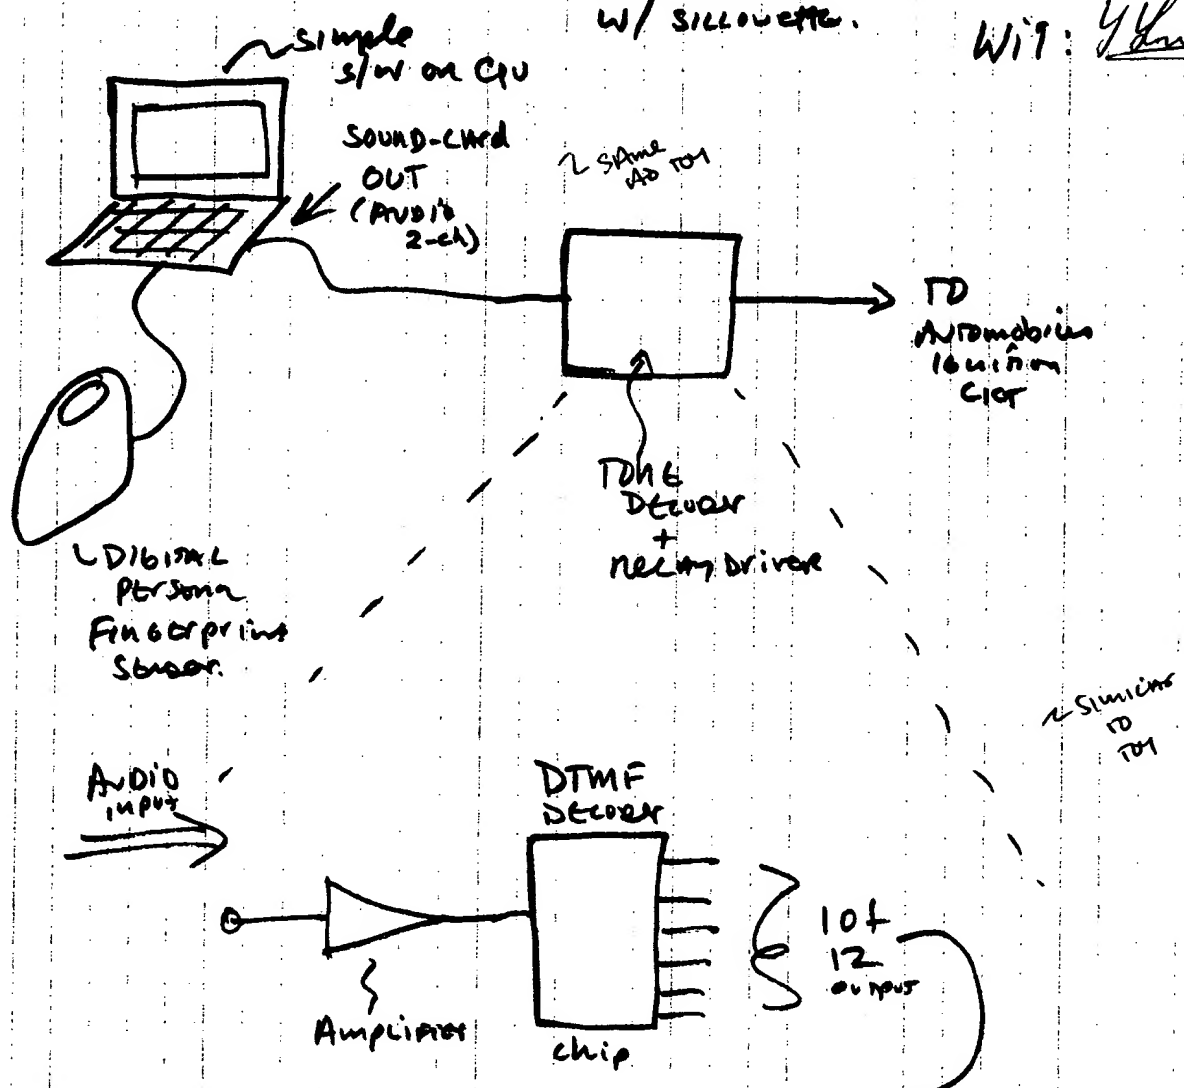 w/ SILLOUETTE.
Wit:
simple
s/w on CPU
SOUND-CARD
OUT
(AUDIO
2-ch)
~ SAME
AS TOY
TO
Automobiles
Ignition
CKT
TONE
DECODER
+
Relay Driver
DIGITAL
Persona
Fingerprint
Sensor.
~ SIMILAR
TO
TOY
AUDIO
input
DTMF
DECODER
1 of
12
output
Amplifier
chip